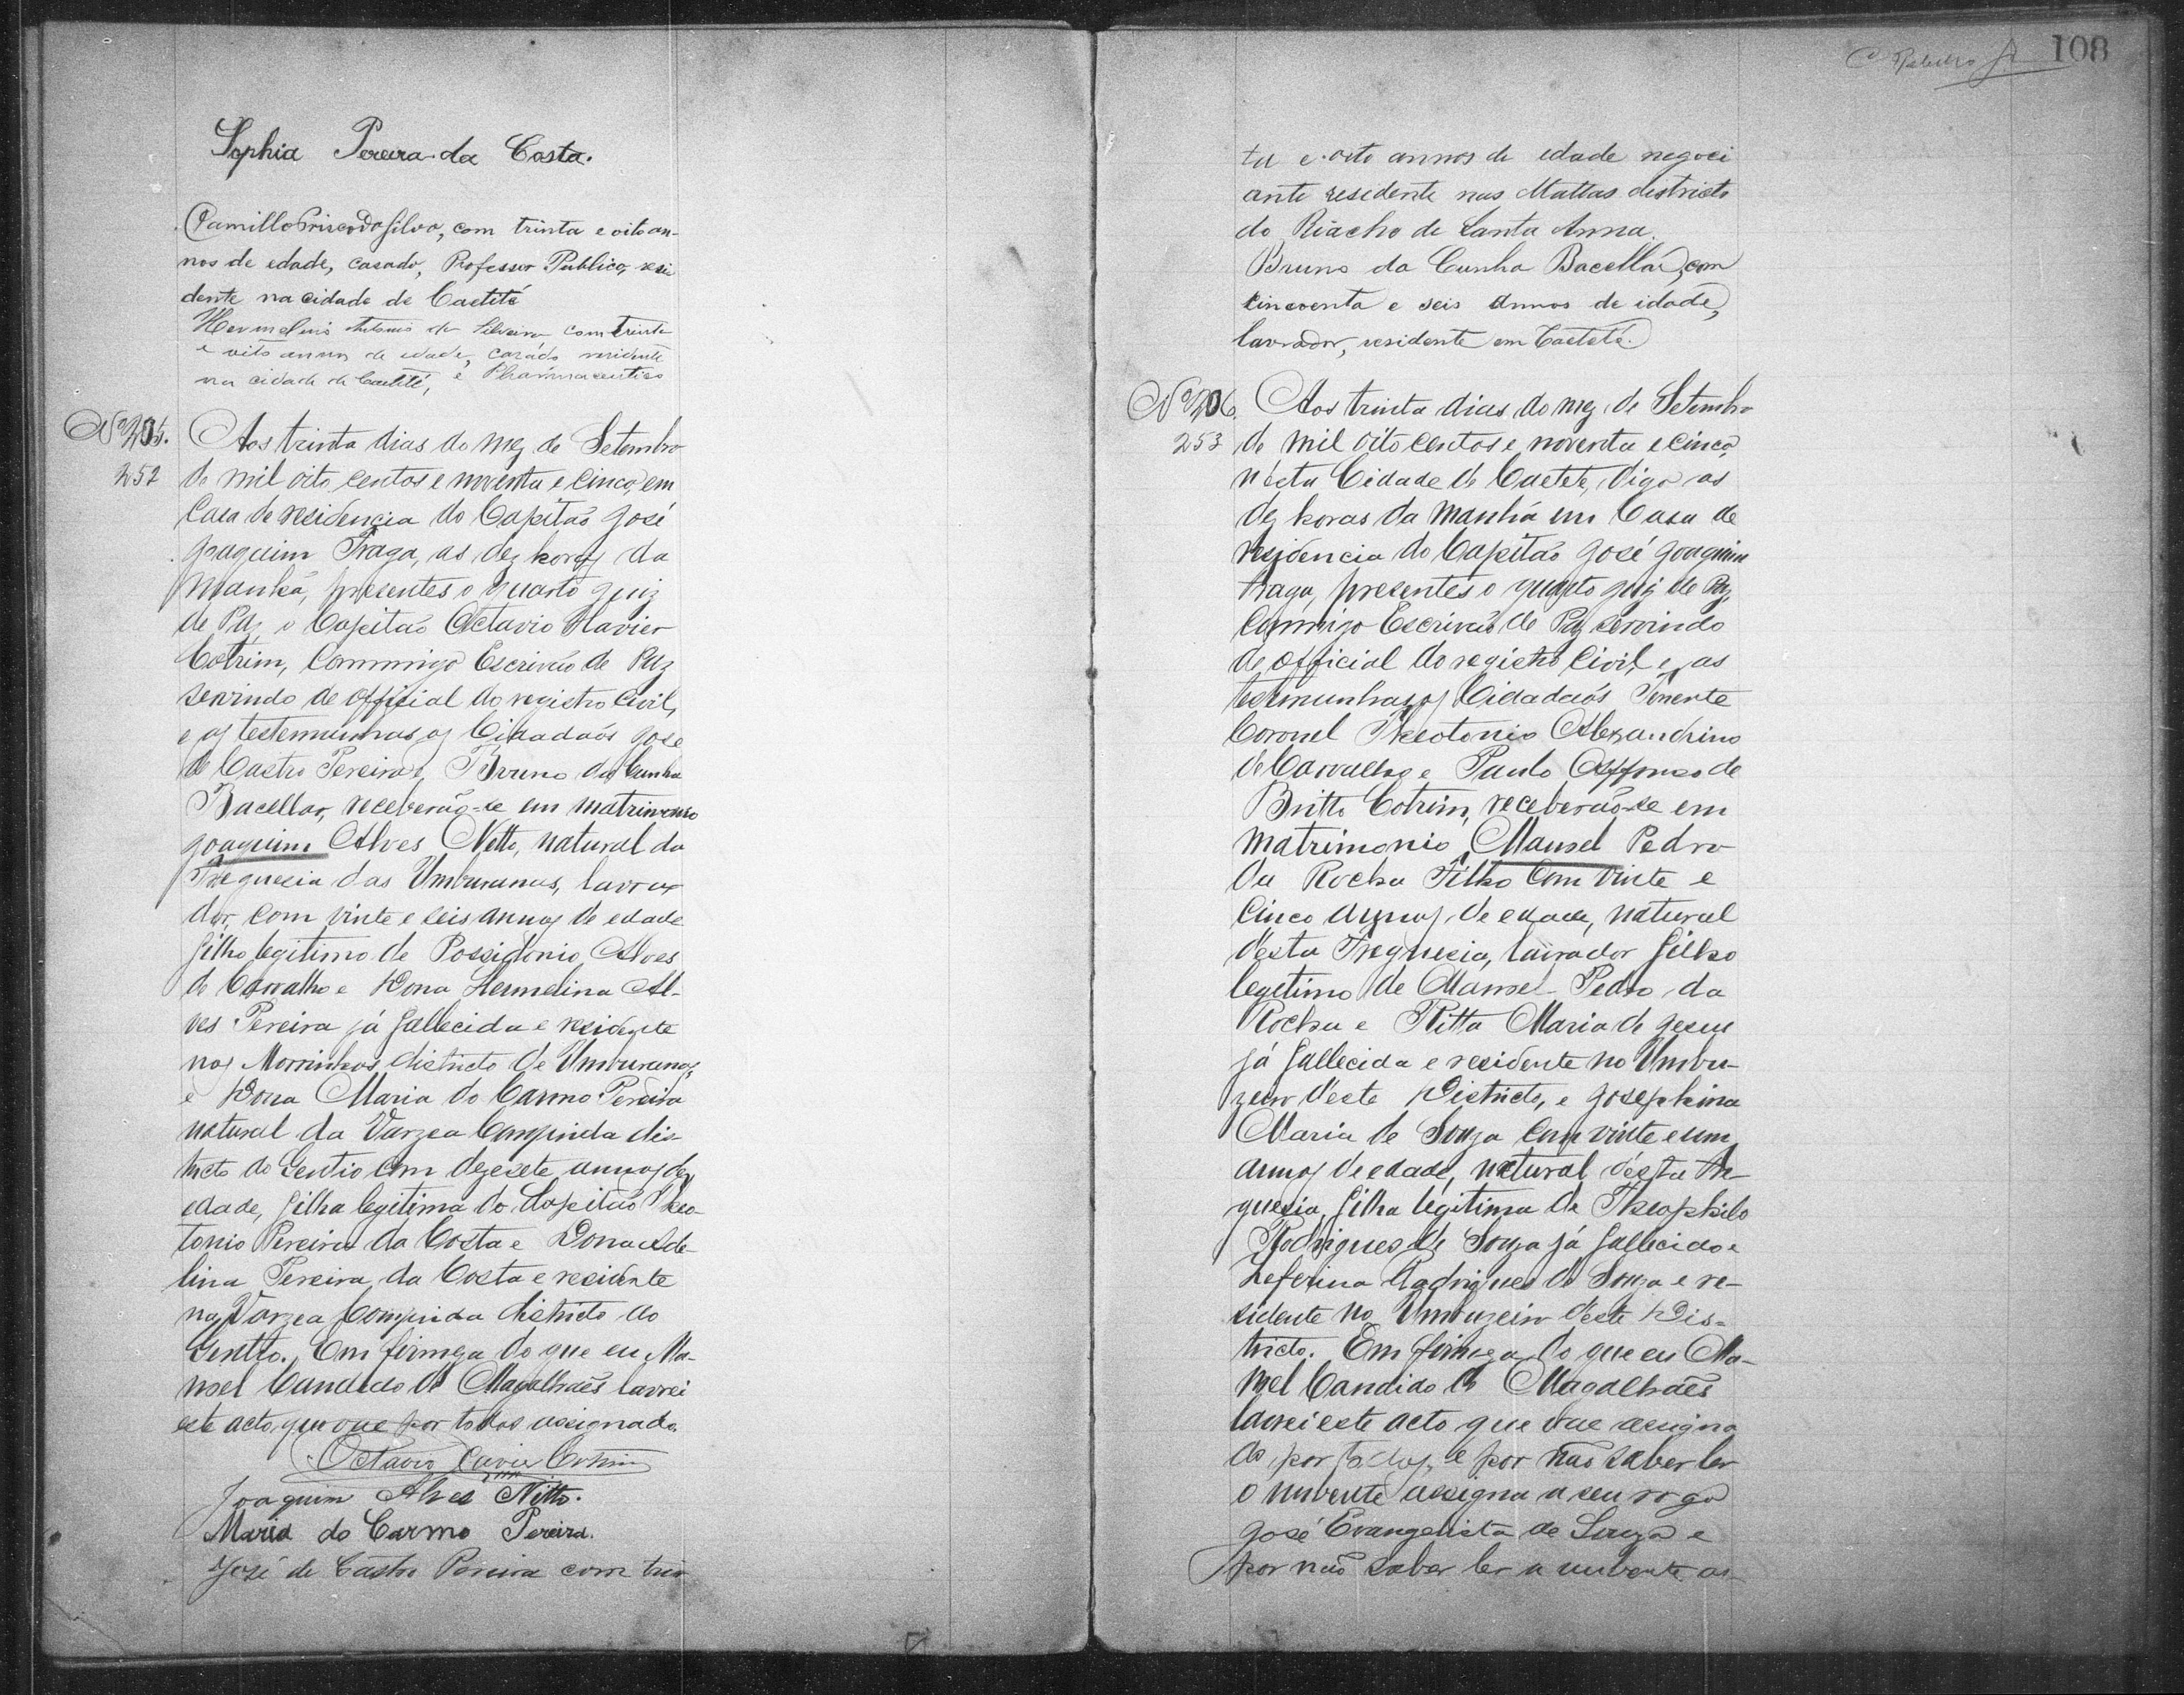 Sophia Pereira da Costa.
Camillo Prisco da Silva, com trinta e oito an-
nos de edade, casado, Professor Publico, resi
dente na cidade de Caetité
Hermelino Antonio da Silveira, com trinta
e oito annos de edade, casado residente
na cidade de Caetité, e Pharmaceutico
Nº 205.
252
Aos trinta dias do mez de Setembro
de mil oito centos e noventa e cinco, em
Casa de residencia do Capitão José
Joaquim Fraga, as dez horas da
manhã, presentes o quarto Juiz
de Paz, o Capitão Octavio Xavier
Cotrim, Commigo Escrivão de Paz
servindo de official do registro Civil,
e as testemunhas, os Cidadãos José
de Castro Pereira e Bruno da Cunha
Bacellar, receberão-se em matrimonio
Joaquim Alves Netto, natural da
Freguesia das Umburanas, lavra
dor, com vinte e seis annos de edade
filho legitimo de Possidonio Alves
de Carvalho e Dona Hermelina Al-
ves Pereira já fallecida e residente
nos Morrinhos districto de Umburanas,
e Dona Maria do Carmo Pereira
natural da Varzea Comprida dis-
tricto do Gentio com dezesete annos de
edade, filha legitima do Capitão Theo-
tonio Pereira da Costa e Dona Ade-
lina Pereira da Costa e residente
na Varzea Comprida districto do
Gentio. Em firmeza do que eu Ma-
noel Candido de Magalhães lavrei
este acto que vae por todos assignado.
Octavio Xavier Cotrim
Joaquim Alves Netto.
Maria do Carmo Pereira.
José de Castro Pereira com trin
108
ta e oito annos de edade negoci
ante residente nas Mattas districto
do Riacho de Santa Anna.
Bruno da Cunha Bacellar, com
cincoenta e seis annos de idade,
lavrador, residente em Caeteté.
Nº 206.
253
Aos trinta dias do mez de Setembro
de mil oito centos e noventa e cinco,
nésta Cidade de Caeteté, digo as
dez horas da manhã em Casa de
residencia do Capitão José Joaquim
Fraga, presentes o quarto juiz de Paz,
Commigo Escrivão de Paz servindo
de official do registro Civil, e as
testemunhas, os Cidadãos Tenente
Coronel Theotonio Alexandrino
de Carvalho e Paulo Affonso de
Britto Cotrim, receberão-se em
matrimonio Manoel Pedro
da Rocha Filho com vinte e
cinco annos de edade, natural
desta Freguesia, lavrador filho
legitimo de Manoel Pedro da
Rocha e Ritta Maria de Jesus
já fallecida e residente no Umbu-
zeiro déste Districto, e Josephina
Maria de Souza com vinte e um
annos de edade, natural désta Fre-
guesia, filha legitima de Theophilo
Rodrigues de Souza já fallecido e
Zeferina Rodrigues de Souza e re-
sidente no Umbuzeiro deste Dis-
tricto. Em firmeza do que eu Ma-
noel Candido de Magalhães
lavrei este acto que vae assigna
do por todos, e por não saber ler
o nubente assigna a seu rogo
José Evangelista de Souza e
por não saber ler a nubente as-